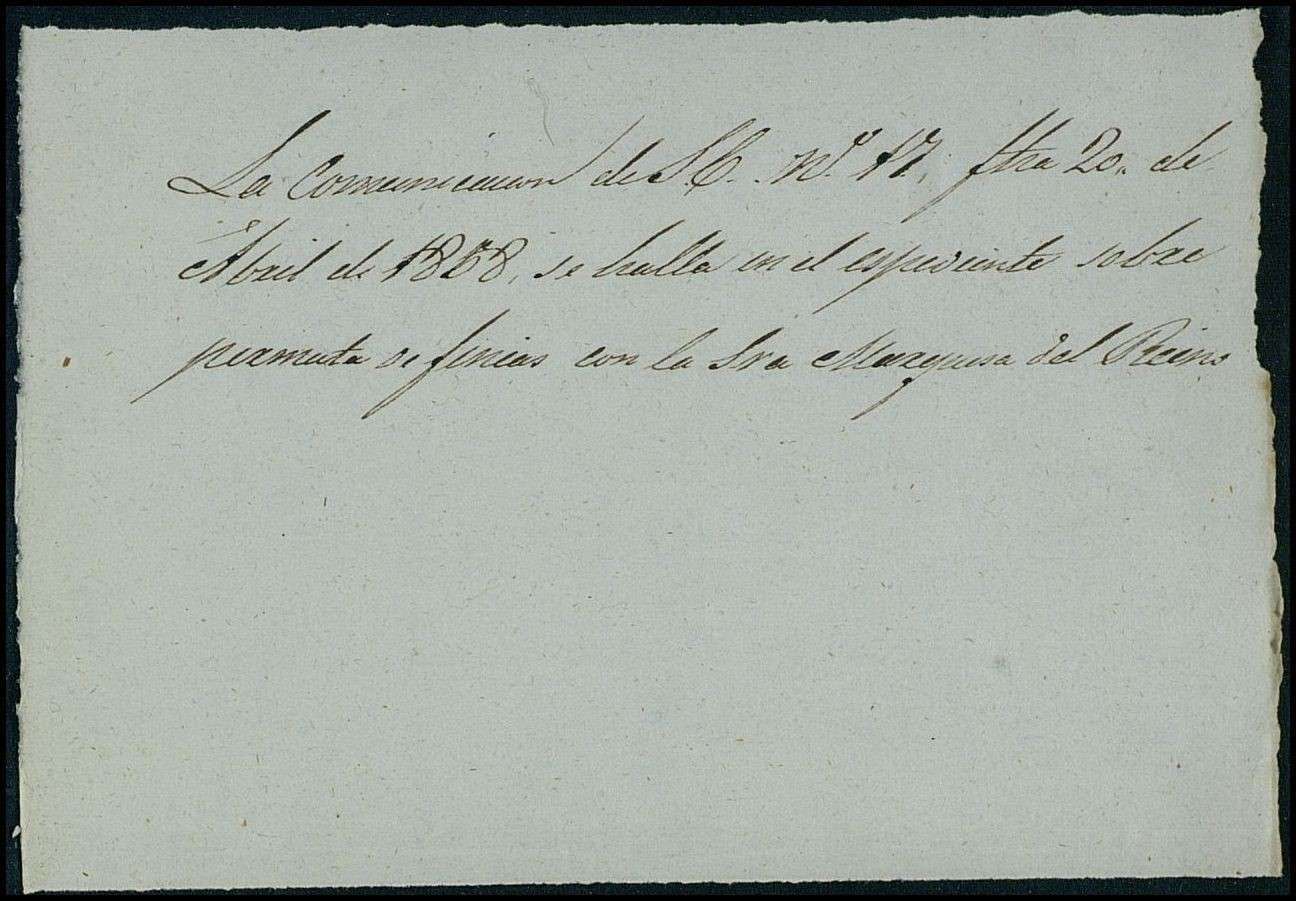 La Comunicacion de S.E. N.º 17, fha 20,, de
Abril de 1858, se halla en el espediente sobre
permuta de fincas con la Sra Marquesa del Reino